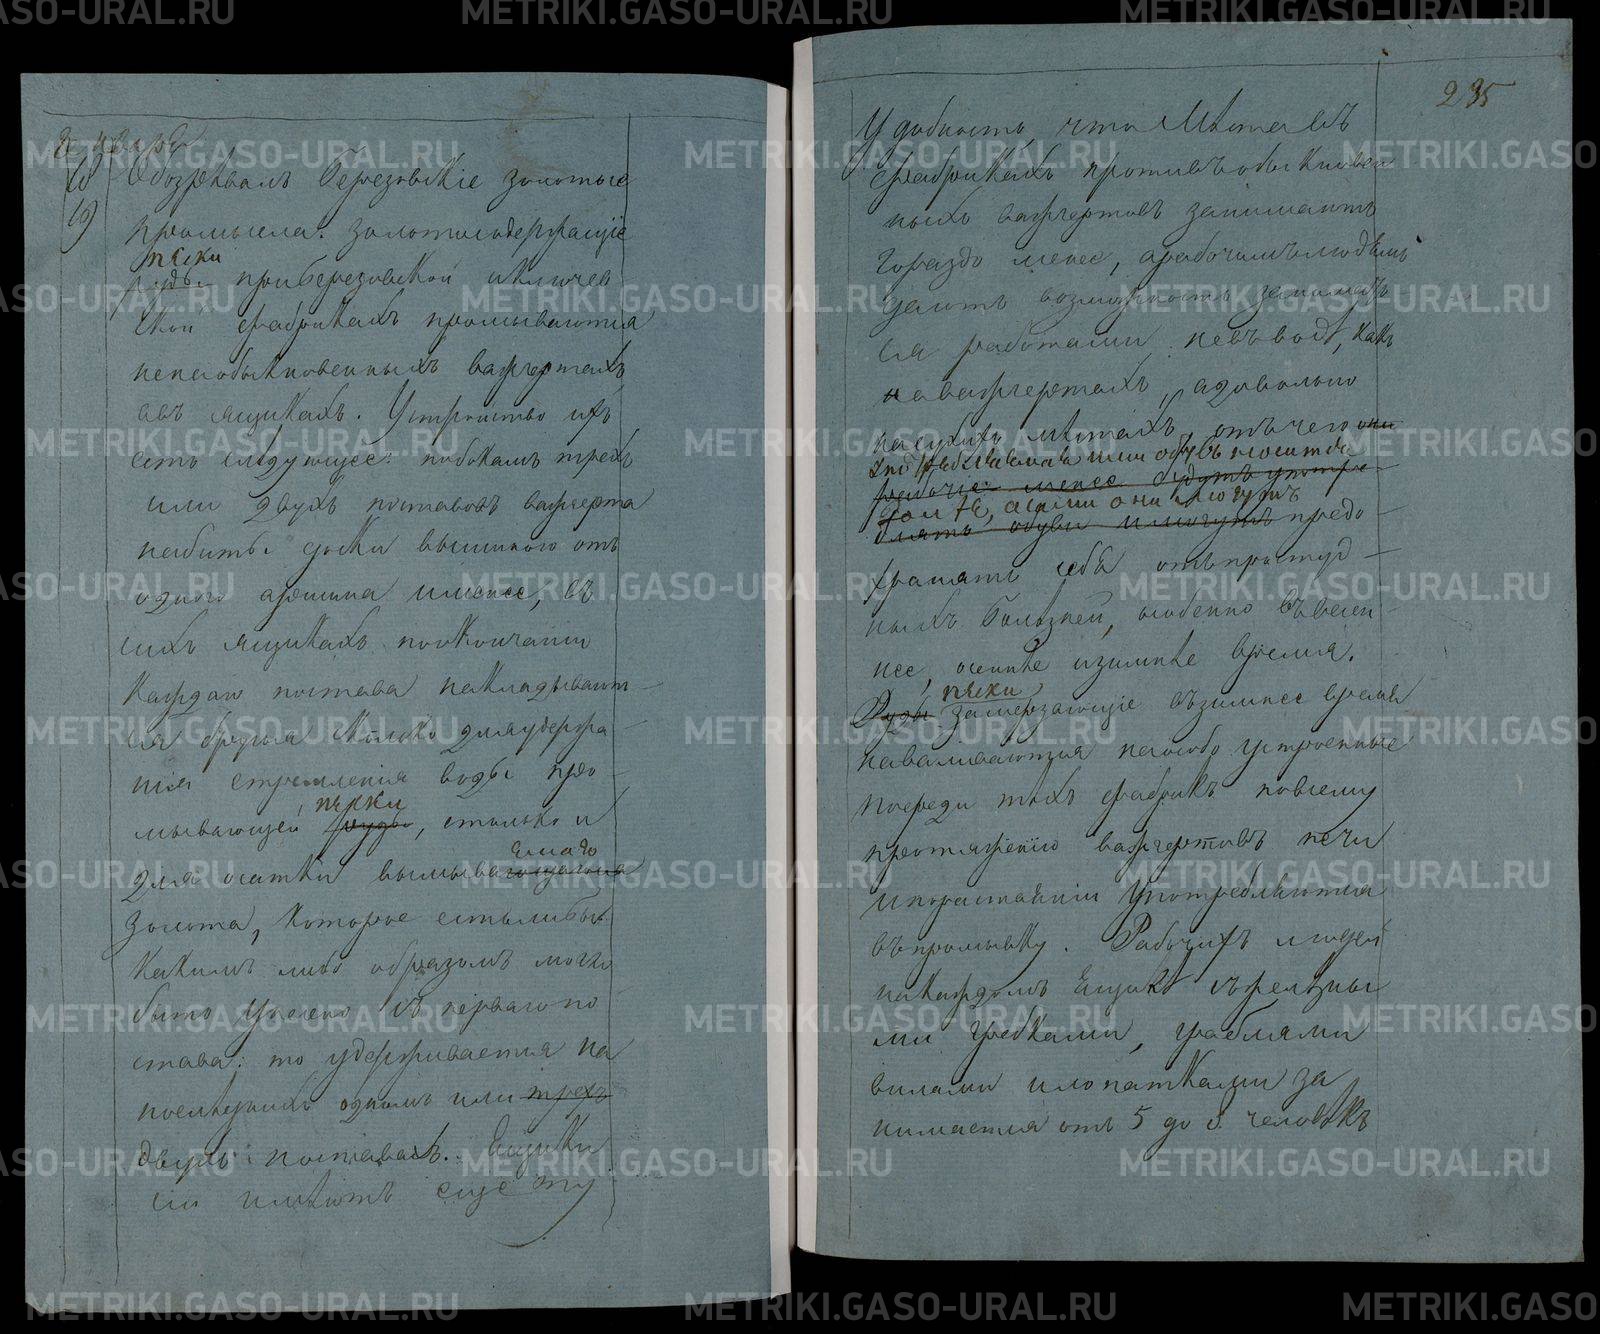 Генваря
18
19
Обозрѣвалъ Березовскіе золотые
промысла. Золотосодержащіе
пѣски
руды при Березовской и Ключев
ской фабрикахъ промываются
не на обыкновенныхъ вашгертахъ
а въ ящикахъ. Устройство ихъ
есть слѣдующее: по бокамъ трехъ
или двухъ поставовъ вашгерта
набиты доски вышиною отъ
одного аршина и менее, въ
сихъ ящикахъ по окончаніи
каждаго постава накладывают
ся брусья сколько для удержа
нія стремленія воды про
мывающей пѣски
руды, столько и
для осатки вымываемаго
ющагося
золота, которое естьлибы
какимъ либо образомъ могло
быть унесено съ перваго по
става: то удерживается на
послѣднихъ одномъ или трехъ
двухъ поставахъ. Ящики
сіи имѣютъ еще ту
235
Удобность что Мѣста въ
фабрикахъ противъ обыкновен
ныхъ вашгертовъ занимаютъ
гораздо менее, а рабочимъ людямъ
даютъ возможность занимать
ся работами не въ водѣ, какъ
на вашгертахъ, а довольно
на сухихъ мѣстахъ, отъ чего они
рабочіе менее будутъ употре
долѣе, а сами они могутъ
блять обуви и могутъ предо
хранять себя отъ простуд
ныхъ болѣзней, особенно въ весен
нее, осеннѣе и зимнѣе время.
пѣски
Руды замерзающіе въ зимнее время
наваливаются на особо устроенные
посреди тѣхъ фабрикъ по всему
протяженію вашгертовъ печи
и по растаяніи употребляются
въ промывку. Рабочихъ людей
на каждомъ Ящикѣ съ желѣзны
ми гребками, граблями
вилами и лопатками за
нимается отъ 5 до 8 человѣкъ